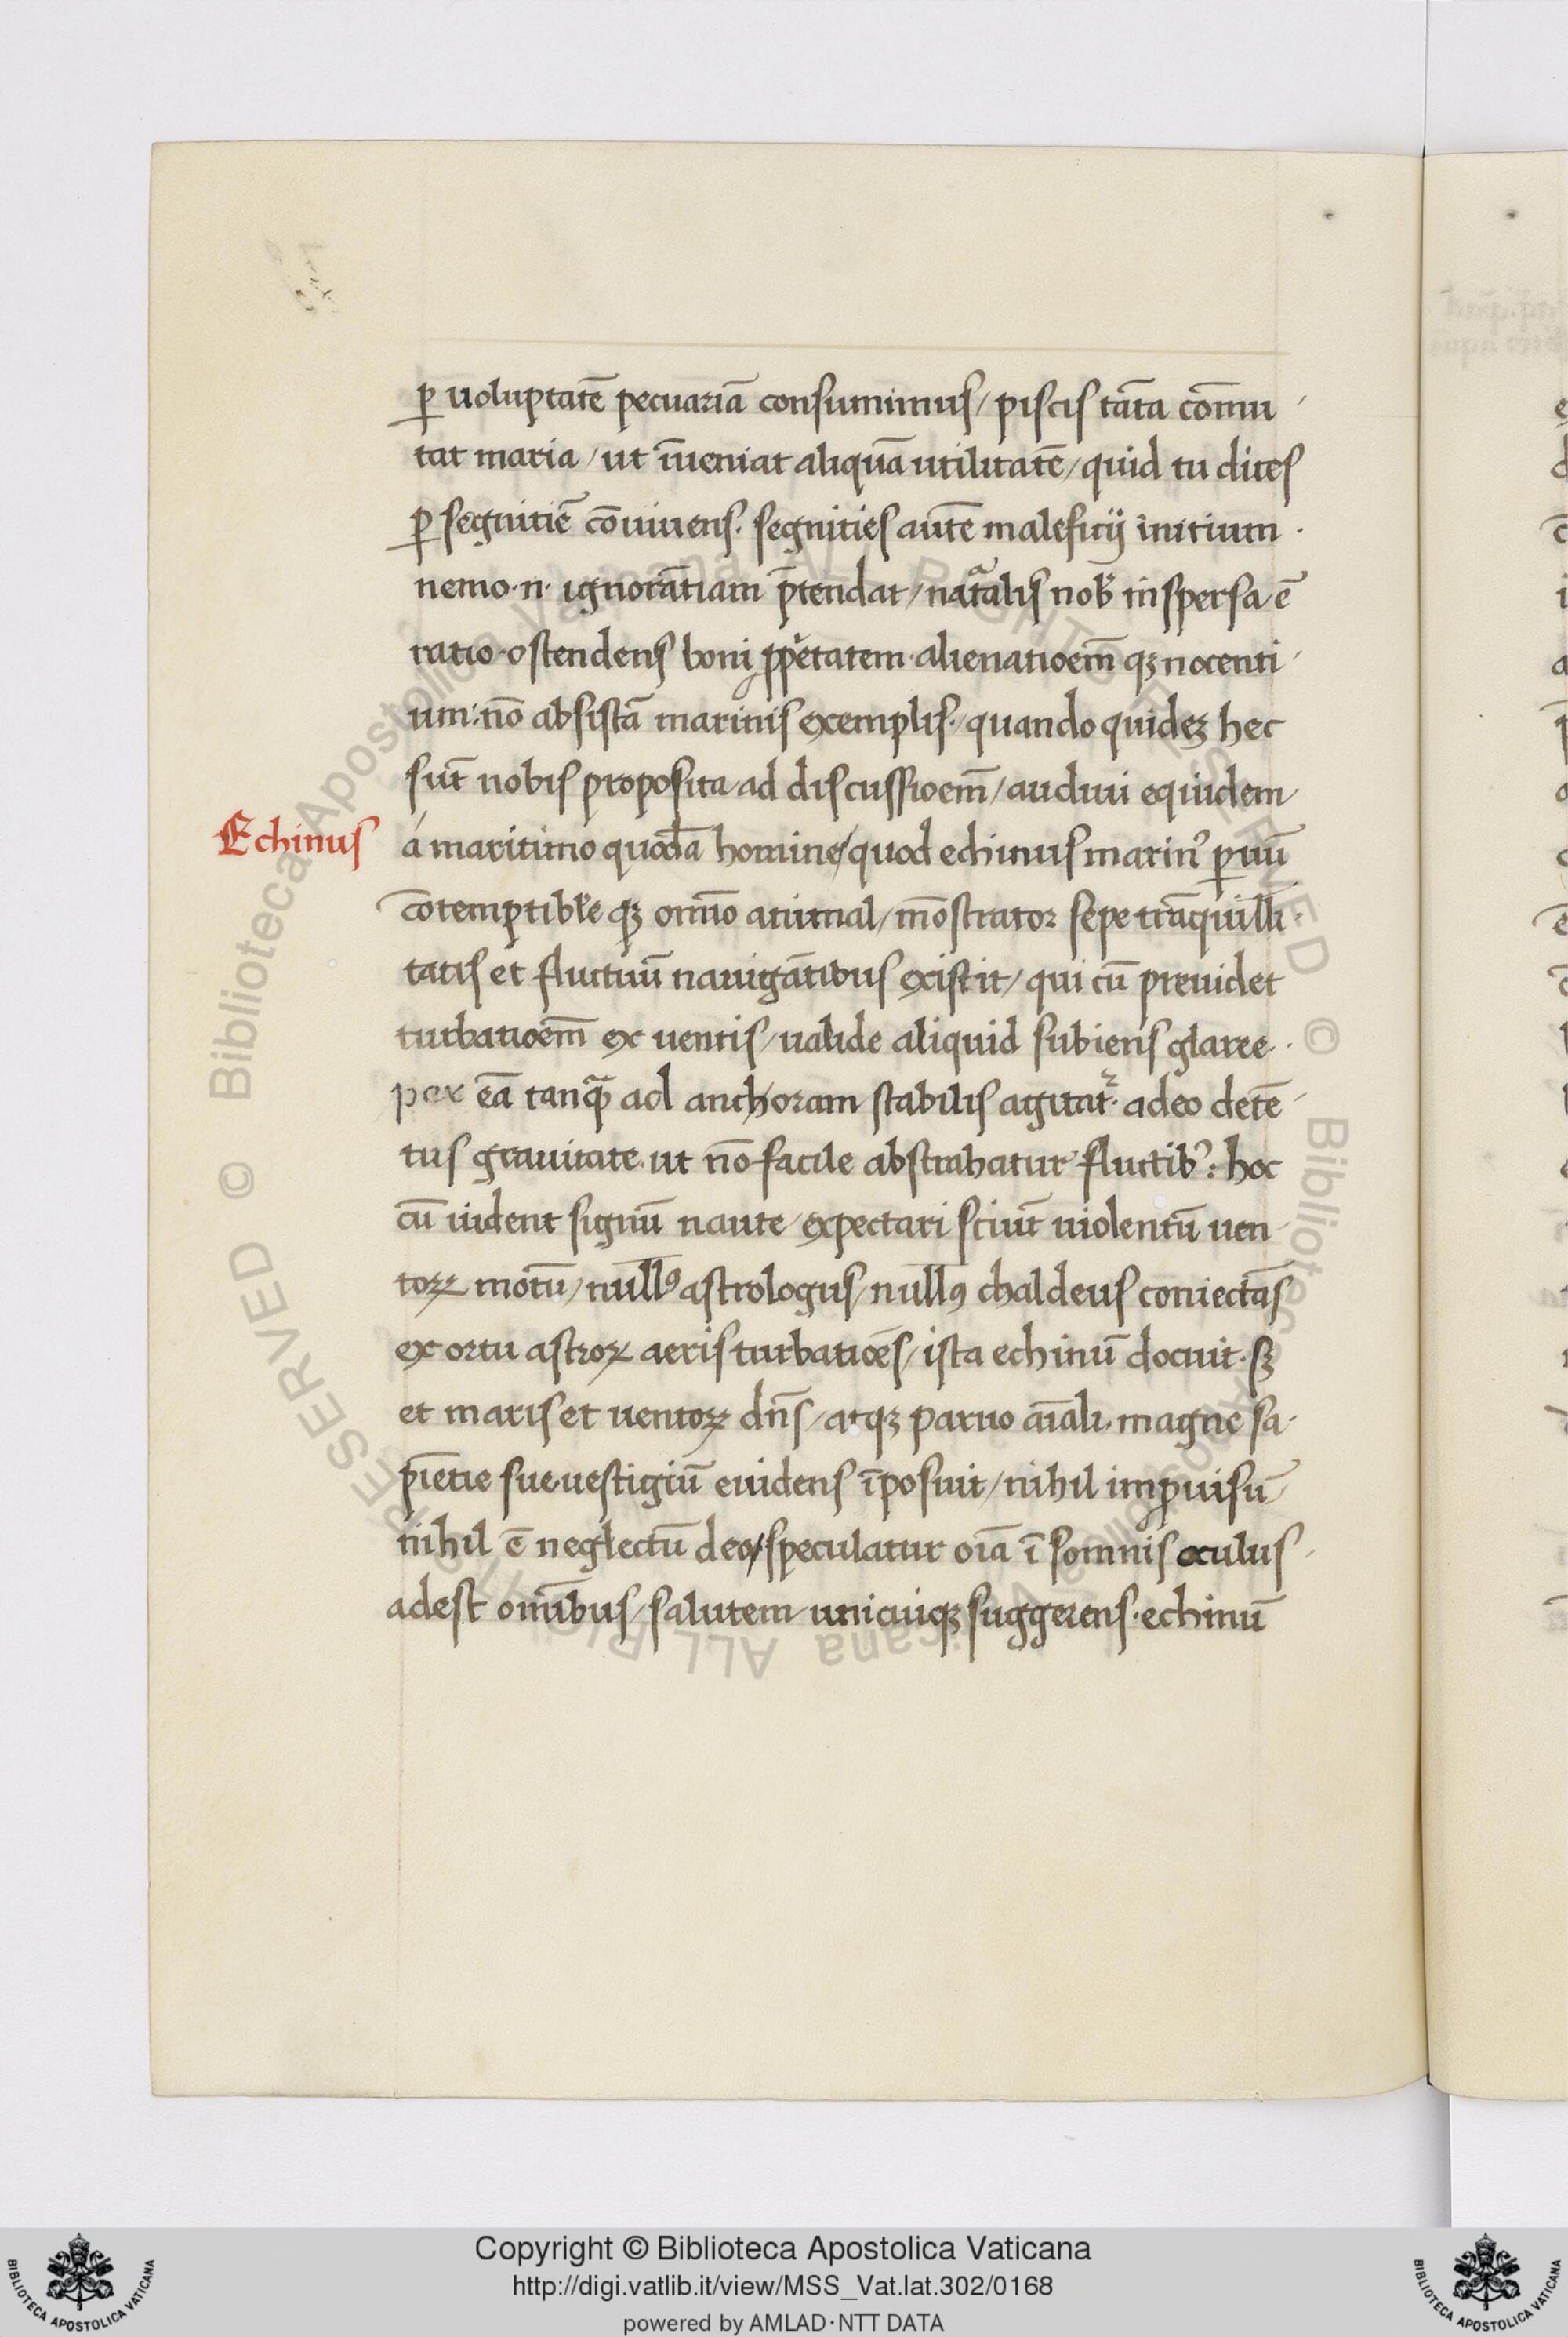 ꝑ uoluptatē pecuariā consumimus/ piscis tāta cōmu
tat maria/ ut īueniat aliquā utilitatē/ quid tu dices
ꝑ segnitiē cōuiuens. segnities autē maleficij initium
nemo.n. ignorātiam p̄tendat/ naᵗalis nob̄ inspersa ē
ratio. ostendens boni ꝓp̄etatem. alienatioem̄ qꝫ nocenti
um: nō absistā marinis exemplis. quando quideꝫ hec
sūt nobis proposita ad discussioem̄/ audiui equidem
Echinus
á maritimo quodā homine/ quod echinus marinꝰ ꝑuū
cōtemptible qꝫ omīo animal/ mōstrator sepe trāquilli
tatis et fluctuū nauigātibus existit/ qui cū preuidet
turbatioem̄ ex uentis/ ualide aliquid subiens glaree.
eā tanqᷓ ad anchoram stabilis agitat᷑. adeo detē
tus grauitate. ut nō facile abstrahatur fluctibꝰ: hoc
cū uident signū naute/ expectari sciūt uiolentū uen
toꝝ motū/ nullꝰ astrologus/ nullꝰ chaldeus coniectās
ex ortu astroꝝ aeris turbatiōes/ ista echinū docuit. sꝫ
et maris et uentoꝝ dn̄s/ atqꝫ paruo aīali magne sa
piētie sue uestigiū euidens īposuit/ nihil imꝓuisū
nihil ē neglectū deo/ speculatur oīa ī somnis oculus
adest omībus/ salutem unicuiqꝫ suggerens. echinū
Copyright © Biblioteca Apostolica Vaticana
http://digi.vatlib.it/view/MSS_Vat.lat.302/0168
powered by AMLAD·NTT DATA